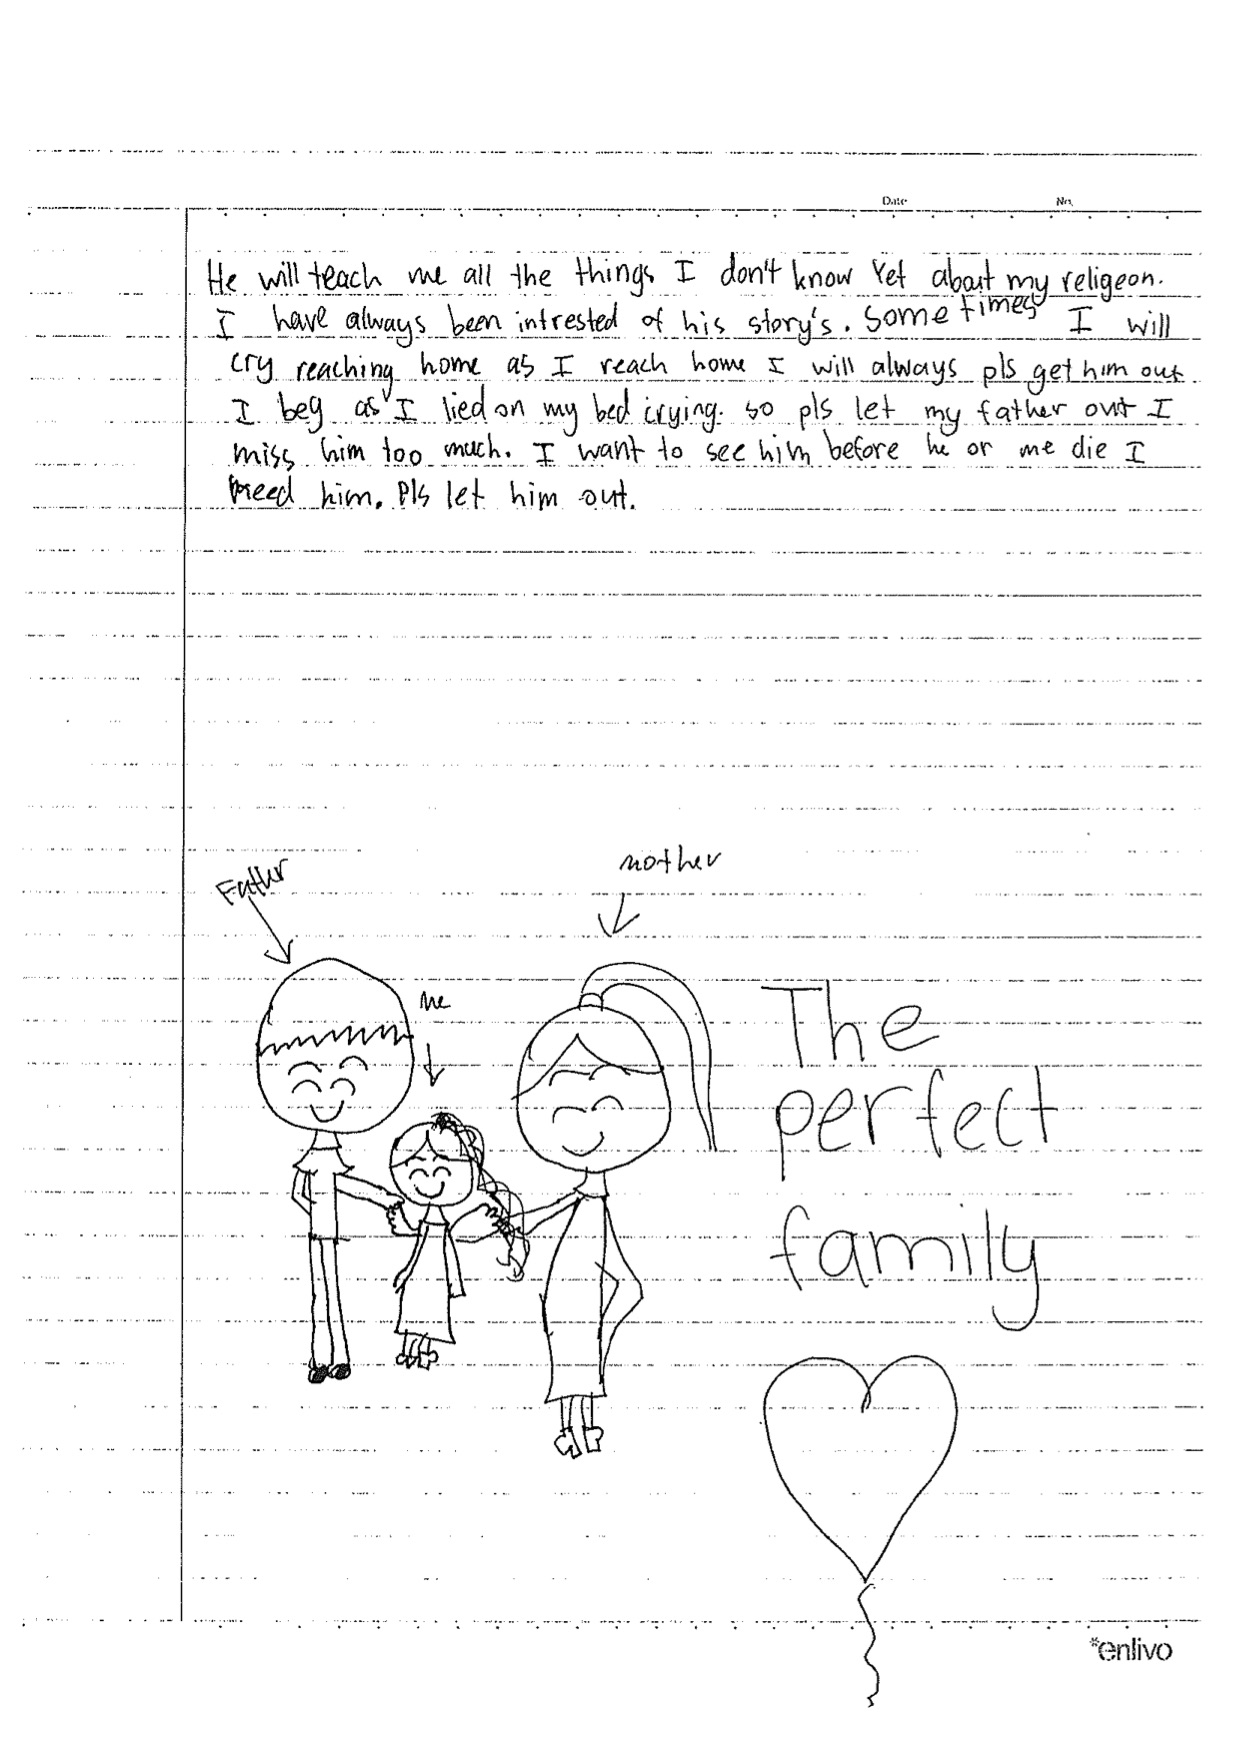 Date No.
He will teach me all the things I don't know Yet about my religeon.
I have always been intrested of his story's. Some times I will
cry reaching home as I reach home I will always pls get him out
I beg as I lied on my bed crying. so pls let my father out I
miss him too much. I want to see him before he or me die I
need him. Pls let him out.
mother
Father
me
The
perfect
family
*enlivo